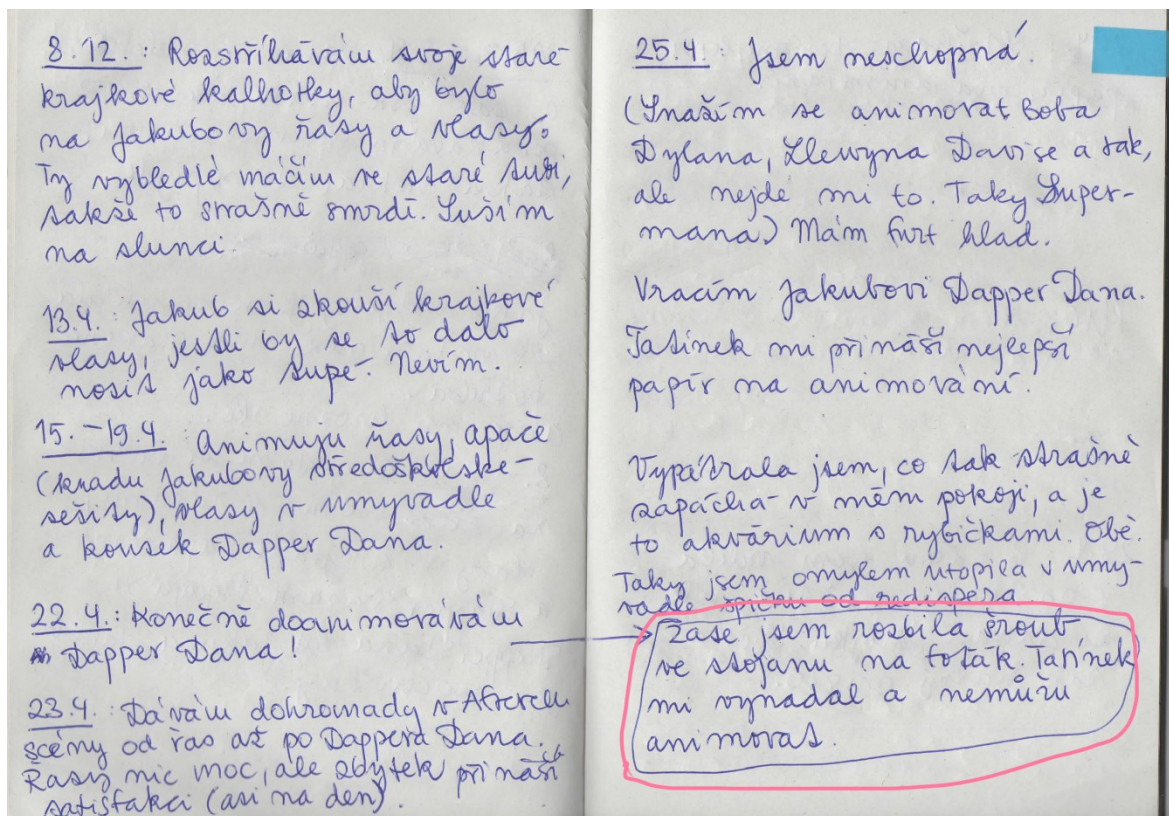 8.12.: Rozstříhávám svoje staré
krajkové kalhotky, aby bylo
na Jakubovy řasy a vlasy.
Ty vybledlé máčím ve staré tuši,
takže to strašně smrdí. Suším
na slunci.
13.4. Jakub si zkouší krajkové
vlasy, jestli by se to dalo
nosit jako tupé. Nevím.
15.–19.4. Animuju řasy, apače
(kradu Jakubovy středoškolské
sešity), vlasy v umyvadle
a kousek Dapper Dana.
22.4.: Konečně doanimovávám
Dapper Dana!
23.4. Dávám dohromady v Afterclu
scény od řas až po Dappera Dana.
Řasy nic moc, ale zbytek přináší
satisfakci (asi na den).
25.4. Jsem neschopná.
(Snažím se animovat Boba
Dylana, Llewyna Davise a tak,
ale nejde mi to. Taky Super-
mana) Mám furt hlad.
Vracím Jakubovi Dapper Dana.
Tatínek mi přináší nejlepší
papír na animování.
Vypátrala jsem, co tak strašně
zapáchá v mém pokoji, a je
to akvárium s rybičkami. Obě.
Taky jsem omylem utopila v umy-
vadle špičku od redispera.
Zase jsem rozbila šroub
ve stojanu na foťák. Tatínek
mi vynadal a nemůžu
animovat.